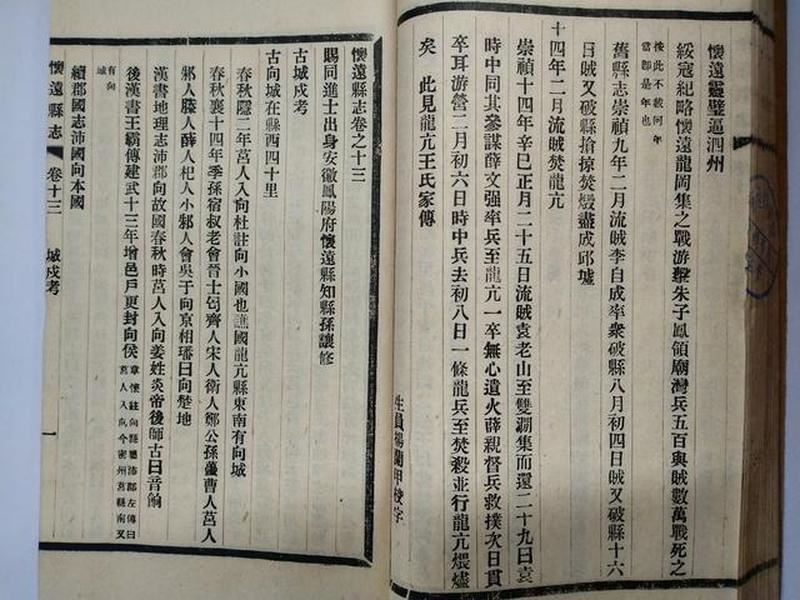 懷遠靈璧逼泗州
綏寇紀略懷遠龍岡集之戰游擊朱子鳳領廟灣兵五百與賊數萬戰死之
按此不載何年
當卽是年也
舊縣志崇禎九年二月流賊李自成率衆破縣八月初四日賊又破縣十六
日賊又破縣搶掠焚燬盡成邱墟
十四年二月流賊焚龍亢
崇禎十四年辛巳正月二十五日流賊袁老山至雙澗集而還二十九日袁
時中同其參謀薛文强率兵至龍亢一卒無心遺火薛親督兵救撲次日貫
卒耳游營二月初六日時中兵去初八日一條龍兵至焚殺並行龍亢煨燼
矣 此見龍亢王氏家傳
生員楊蘭甲校字
懷遠縣志卷之十三
賜同進士出身安徽鳳陽府懷遠縣知縣孫讓修
古城戍考
古向城在縣西四十里
春秋隱二年莒人入向杜註向小國也譙國龍亢縣東南有向城
春秋襄十四年季孫宿叔老會晉士匄齊人宋人衛人鄭公孫蠆曹人莒人
邾人滕人薛人杞人小邾人會吳于向京相璠曰向楚地
漢書地理志沛郡向故國春秋時莒人入向姜姓炎帝後師古曰音餉
後漢書王霸傳建武十三年增邑戶更封向侯
章懷註向縣屬沛郡左傳曰
莒人入向今密州莒縣南又
有向
城
續郡國志沛國向本國
懷遠縣志 卷十三 城戍考 一